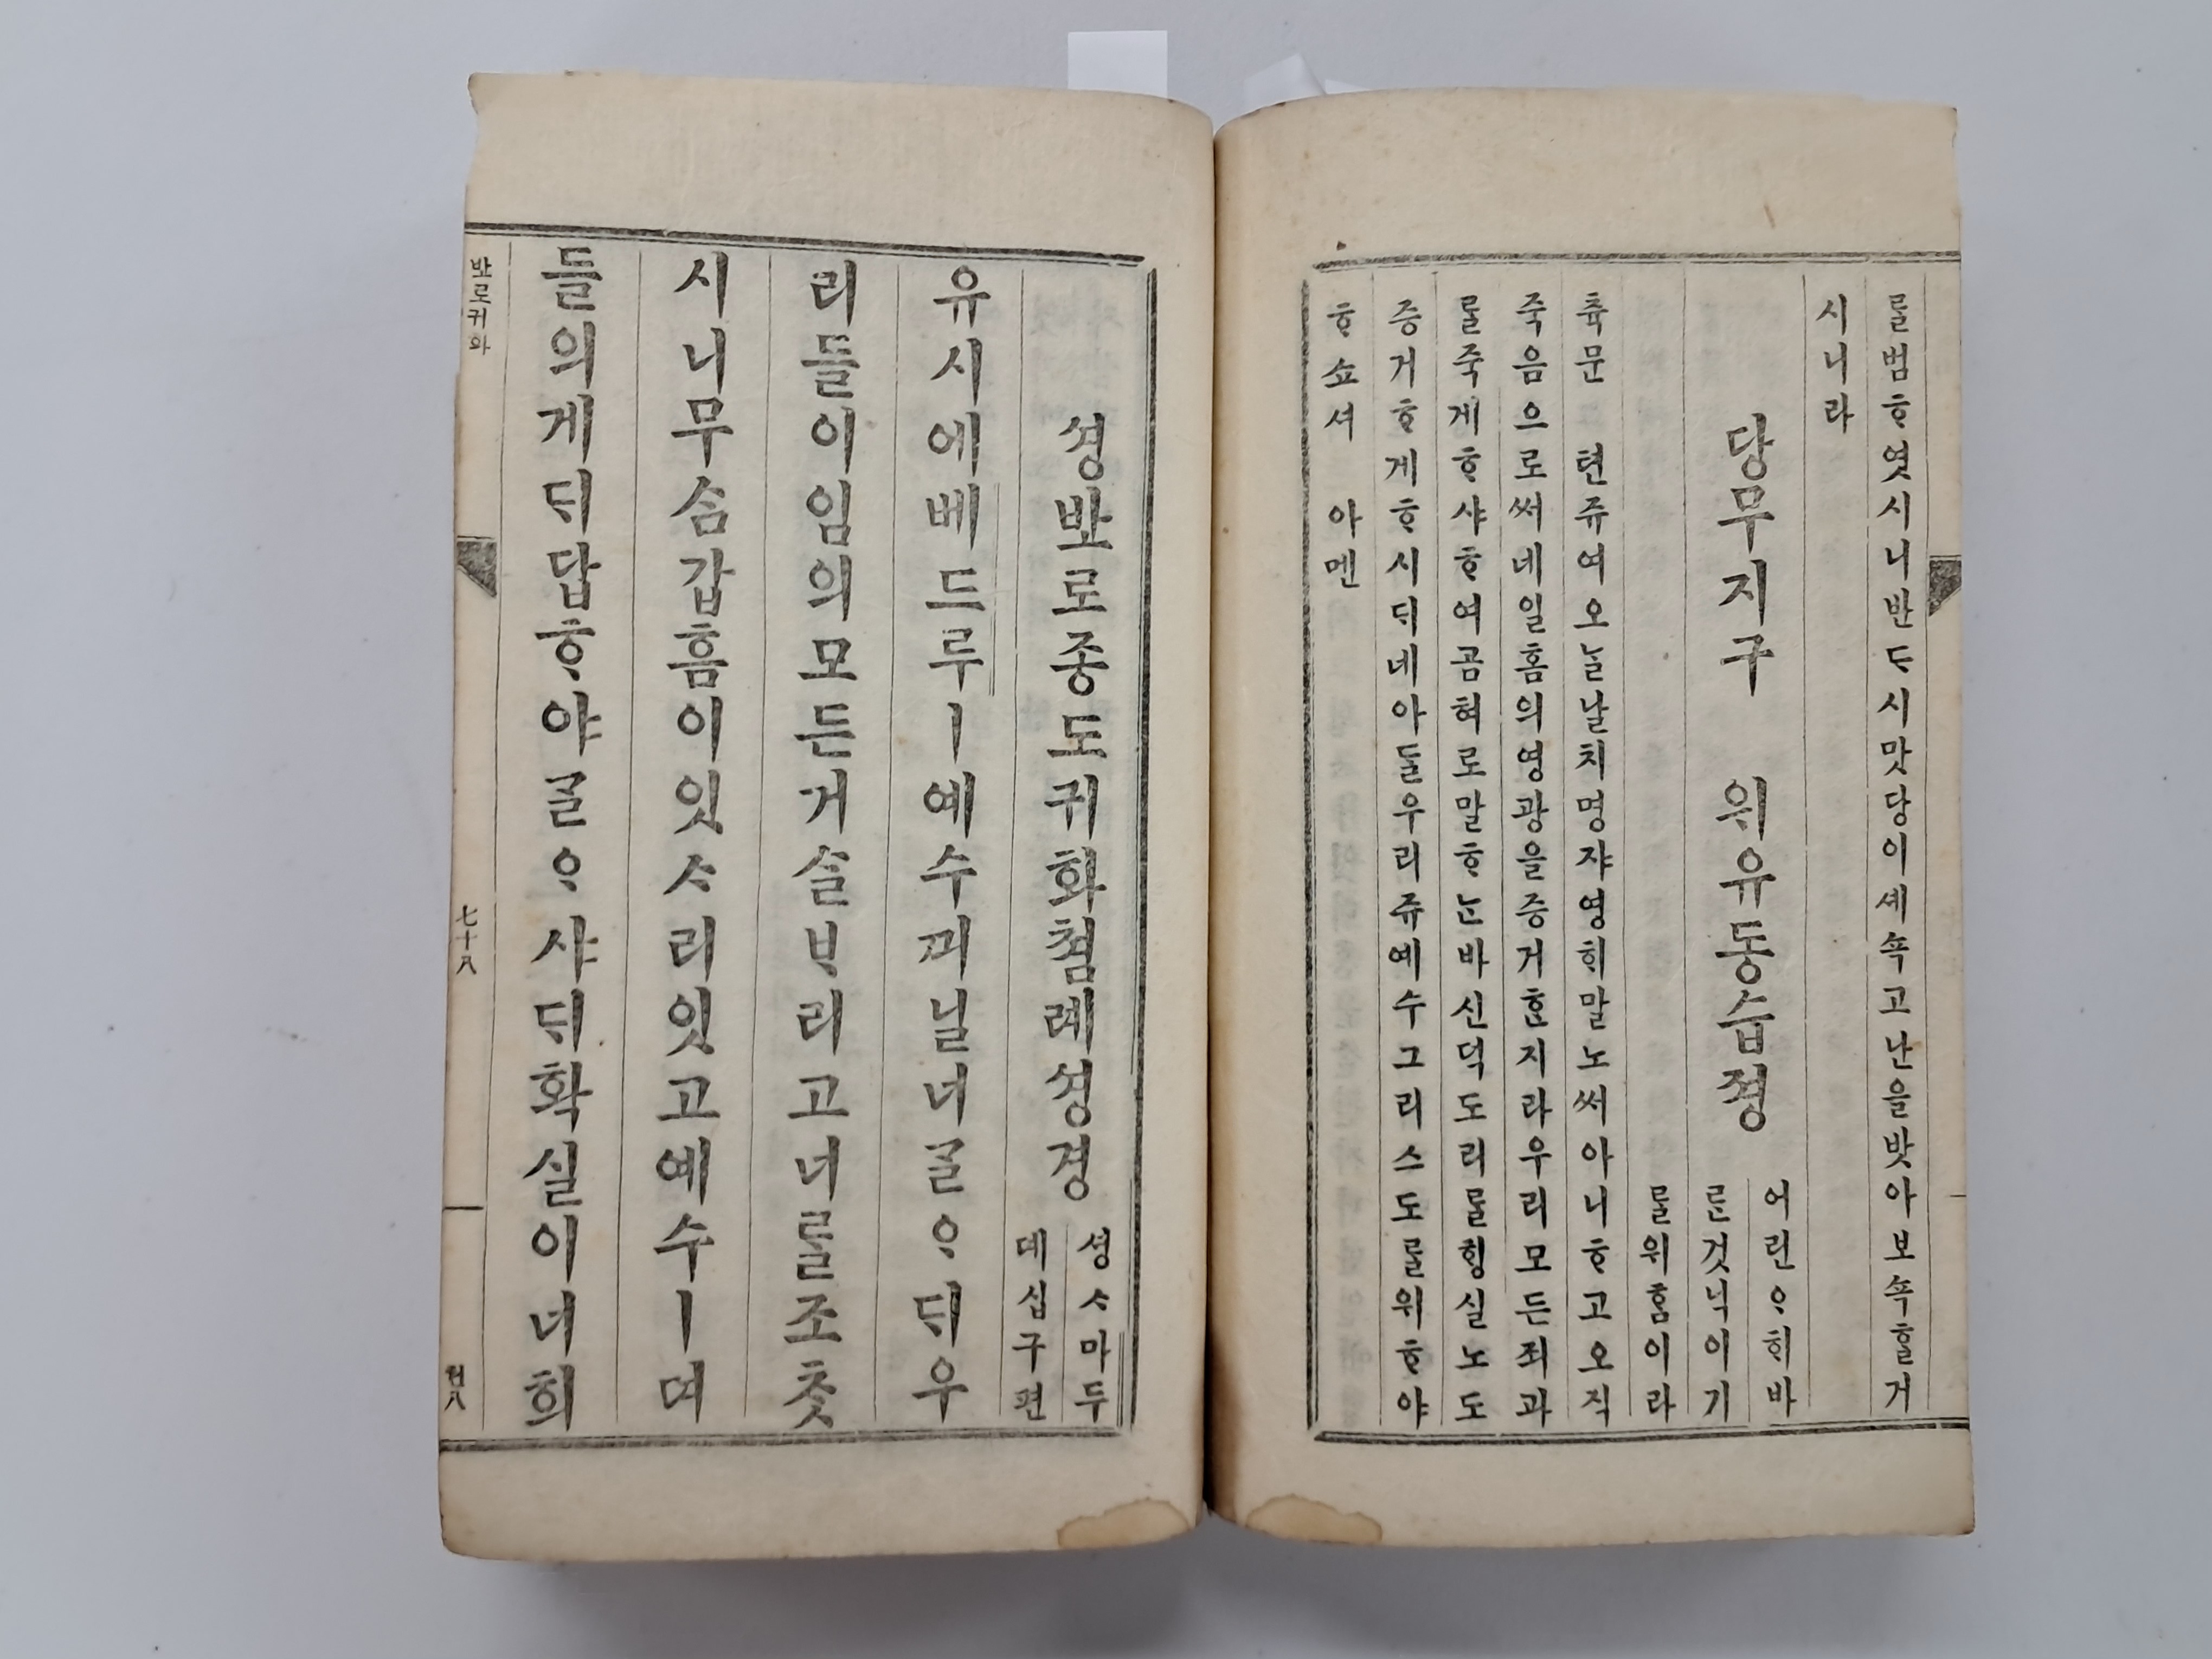 ᄅᆞᆯ범ᄒᆞ엿시니반ᄃᆞ시맛당이셰쇽고난을밧아보쇽ᄒᆞᆯ거
시니라
당무지구 위유동습졍 어린ᄋᆞᄒᆡ바
ᄅᆞᆫ것닉이기
ᄅᆞᆯ위ᄒᆞᆷ이라
츅문 텬쥬여오ᄂᆞᆯ날치명쟈영ᄒᆡ말노써아니ᄒᆞ고오직
죽음으로써네일홈의영광을증거ᄒᆞᆫ지라우리모든죄과
ᄅᆞᆯ죽게ᄒᆞ샤ᄒᆞ여곰혀로말ᄒᆞᄂᆞᆫ바신덕도리ᄅᆞᆯᄒᆡᆼ실노도
증거ᄒᆞ게ᄒᆞ시ᄃᆡ네아ᄃᆞᆯ우리쥬예수그리스도ᄅᆞᆯ위ᄒᆞ야
ᄒᆞ쇼셔 아멘
셩봐로종도귀화쳠례셩경 셩ᄉᆞ마두
데십구편
유시에베드루ㅣ예수ᄭᅴ닐너ᄀᆞᆯᄋᆞᄃᆡ우
리들이임의모든거ᄉᆞᆯᄇᆞ리고너ᄅᆞᆯ조ᄎᆞᆺ
시니무ᄉᆞᆷ갑흠이잇ᄉᆞ리잇고예수ㅣ뎌
들의게ᄃᆡ답ᄒᆞ야ᄀᆞᆯᄋᆞ샤ᄃᆡ확실이너희
봐로귀화
七十八